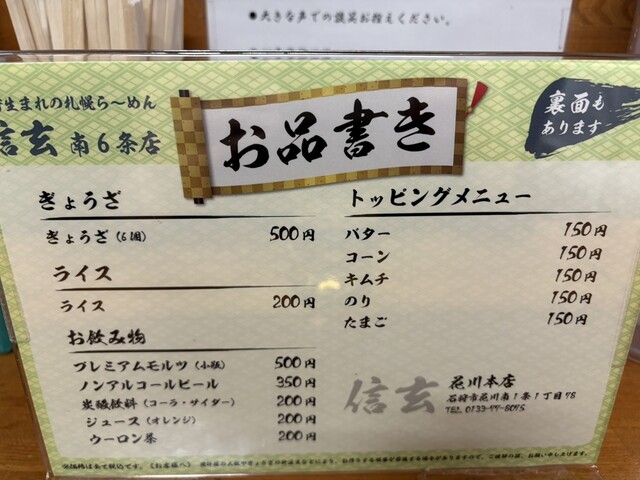 ●大きな声での談笑お控えください。
生まれの札幌ら～めん
信玄 南6条店
お品書き
裏面も
あります
ぎょうざ
ぎょうざ(6個) 500円
ライス
ライス 200円
お飲み物
プレミアムモルツ(小瓶) 500円
ノンアルコールビール 350円
炭酸飲料(コーラ・サイダー) 200円
ジュース(オレンジ) 200円
ウーロン茶 200円
トッピングメニュー
バター 150円
コーン 150円
キムチ 150円
のり 150円
たまご 150円
信玄 花川本店
石狩市花川南1条1丁目78
※価格は全て税込です。《お客様へ》